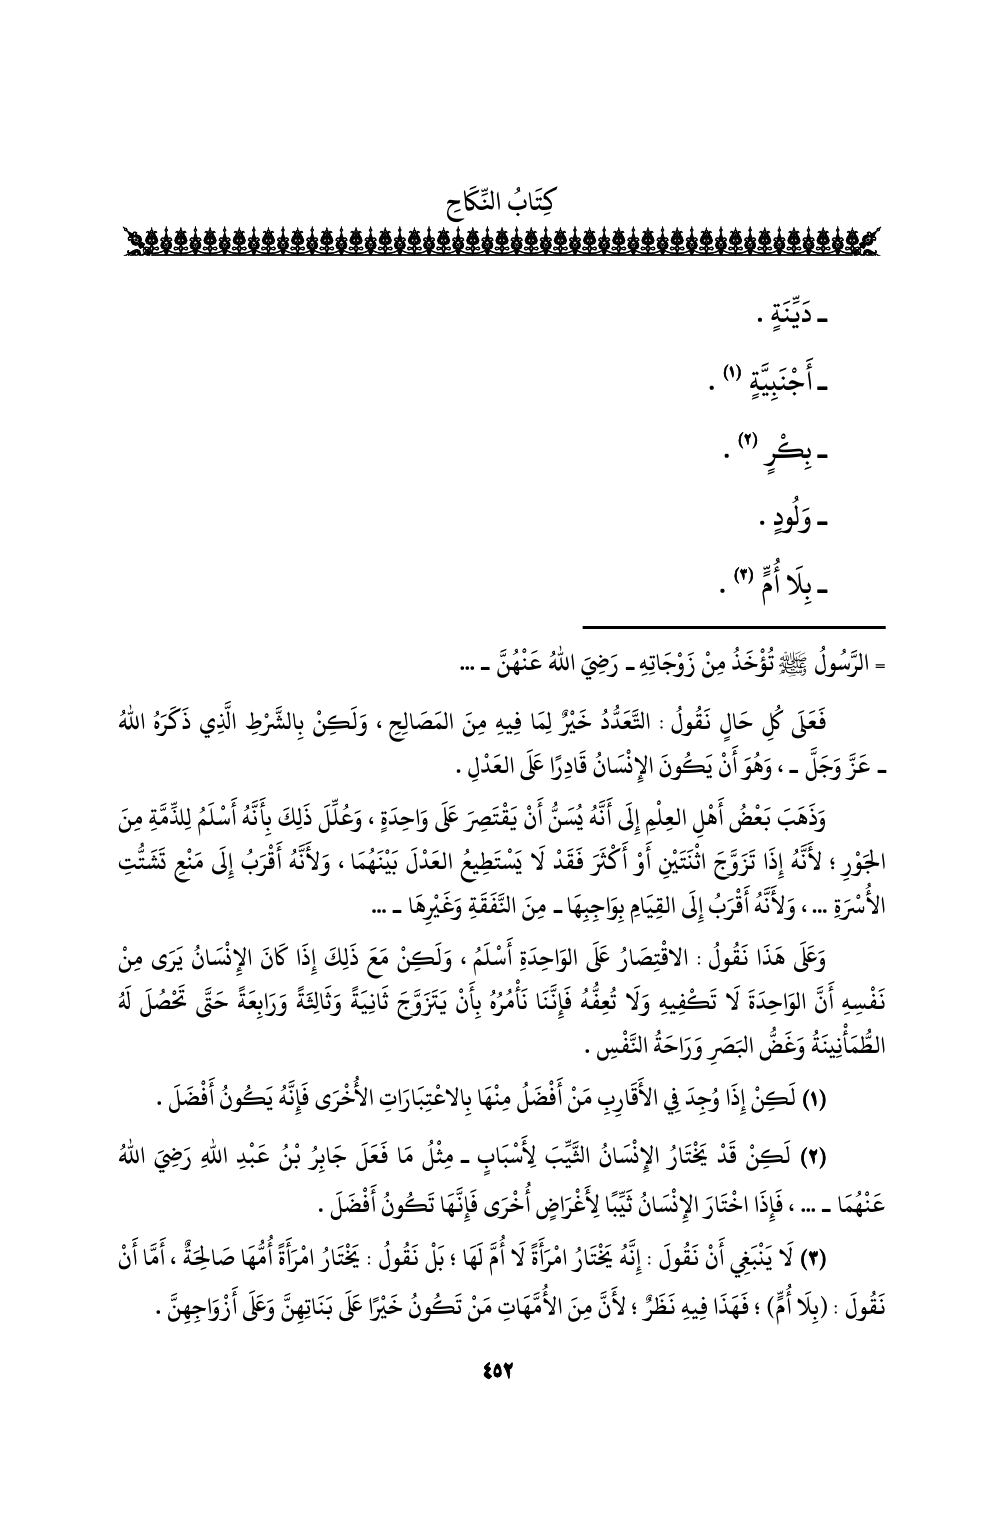 كِتَابُ النِّكَاحِ
ـ دَيِّنَةٍ .
ـ أَجْنَبِيَّةٍ (١) .
ـ بِكْرٍ (٢) .
ـ وَلُودٍ .
ـ بِلَا أُمٍّ (٣) .
= الرَّسُولُ ﷺ تُؤْخَذُ مِنْ زَوْجَاتِهِ ـ رَضِيَ اللهُ عَنْهُنَّ ـ ...
فَعَلَى كُلِ حَالٍ نَقُولُ : التَّعَدُّدُ خَيْرٌ لِمَا فِيهِ مِنَ المَصَالِحِ ، وَلَكِنْ بِالشَّرْطِ الَّذِي ذَكَرَهُ اللهُ
ـ عَزَّ وَجَلَّ ـ ، وَهُوَ أَنْ يَكُونَ الإِنْسَانُ قَادِرًا عَلَى العَدْلِ .
وَذَهَبَ بَعْضُ أَهْلِ العِلْمِ إِلَى أَنَّهُ يُسَنُّ أَنْ يَقْتَصِرَ عَلَى وَاحِدَةٍ ، وَعُلِّلَ ذَلِكَ بِأَنَّهُ أَسْلَمُ لِلذِّمَّةِ مِنَ
الجَوْرِ ؛ لأَنَّهُ إِذَا تَزَوَّجَ اثْنَتَيْنِ أَوْ أَكْثَرَ فَقَدْ لَا يَسْتَطِيعُ العَدْلَ بَيْنَهُمَا ، وَلأَنَّهُ أَقْرَبُ إِلَى مَنْعِ تَشَتُّتِ
الأُسْرَةِ ... ، وَلأَنَّهُ أَقْرَبُ إِلَى القِيَامِ بِوَاجِبِهَا ـ مِنَ النَّفَقَةِ وَغَيْرِهَا ـ ...
وَعَلَى هَذَا نَقُولُ : الاقْتِصَارُ عَلَى الوَاحِدَةِ أَسْلَمُ ، وَلَكِنْ مَعَ ذَلِكَ إِذَا كَانَ الإِنْسَانُ يَرَى مِنْ
نَفْسِهِ أَنَّ الوَاحِدَةَ لَا تَكْفِيهِ وَلَا تُعِفُّهُ فَإِنَّنَا نَأْمُرُهُ بِأَنْ يَتَزَوَّجَ ثَانِيَةً وَثَالِثَةً وَرَابِعَةً حَتَّى تَحْصُلَ لَهُ
الطُّمَأْنِينَةُ وَغَضُّ البَصَرِ وَرَاحَةُ النَّفْسِ .
(١) لَكِنْ إِذَا وُجِدَ فِي الأَقَارِبِ مَنْ أَفْضَلُ مِنْهَا بِالاعْتِبَارَاتِ الأُخْرَى فَإِنَّهُ يَكُونُ أَفْضَلَ .
(٢) لَكِنْ قَدْ يَخْتَارُ الإِنْسَانُ الثَّيِّبَ لِأَسْبَابٍ ـ مِثْلُ مَا فَعَلَ جَابِرُ بْنُ عَبْدِ اللهِ رَضِيَ اللهُ
عَنْهُمَا ـ ... ، فَإِذَا اخْتَارَ الإِنْسَانُ ثَيِّبًا لِأَغْرَاضٍ أُخْرَى فَإِنَّهَا تَكُونُ أَفْضَلَ .
(٣) لَا يَنْبَغِي أَنْ نَقُولَ : إِنَّهُ يَخْتَارُ امْرَأَةً لَا أُمَّ لَهَا ؛ بَلْ نَقُولُ : يَخْتَارُ امْرَأَةً أُمُّهَا صَالِحَةٌ ، أَمَّا أَنْ
نَقُولَ : (بِلَا أُمٍّ) ؛ فَهَذَا فِيهِ نَظَرٌ ؛ لأَنَّ مِنَ الأُمَّهَاتِ مَنْ تَكُونُ خَيْرًا عَلَى بَنَاتِهِنَّ وَعَلَى أَزْوَاجِهِنَّ .
٤٥٢